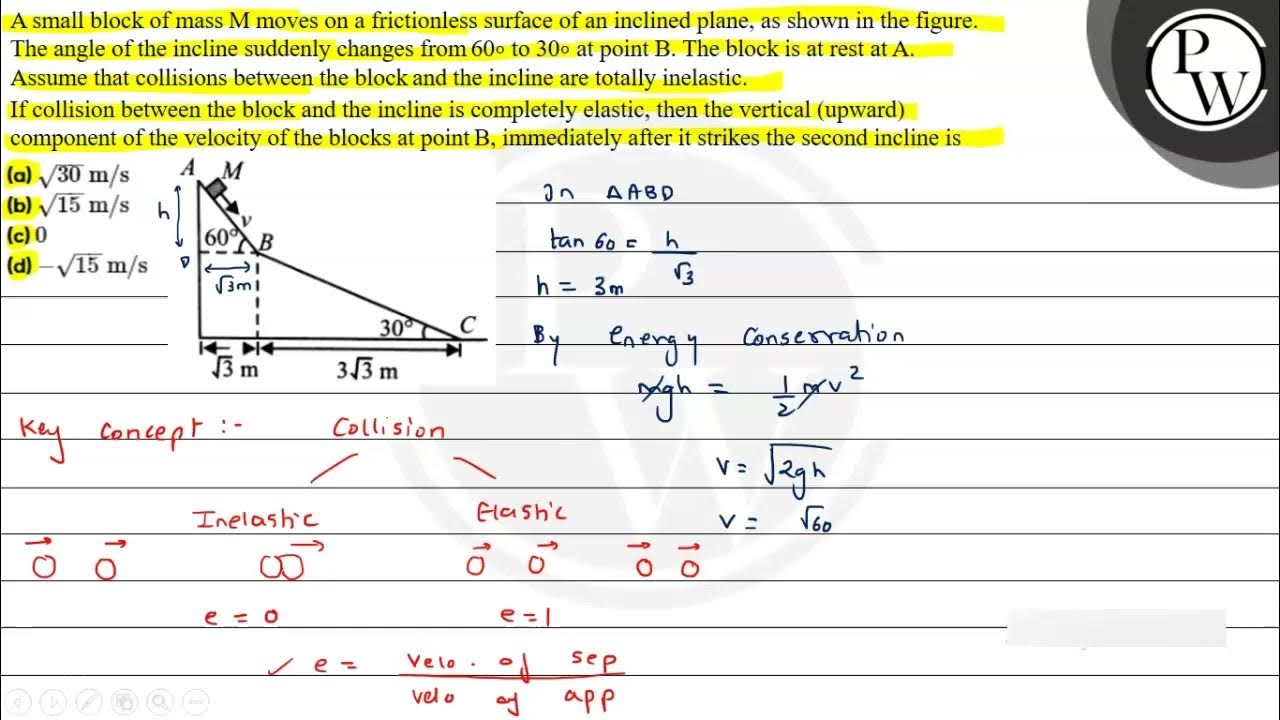 A small block of mass M moves on a frictionless surface of an inclined plane, as shown in the figure.
The angle of the incline suddenly changes from 60∘ to 30∘ at point B. The block is at rest at A.
Assume that collisions between the block and the incline are totally inelastic.
If collision between the block and the incline is completely elastic, then the vertical (upward)
component of the velocity of the blocks at point B, immediately after it strikes the second incline is
(a) √30 m/s
(b) √15 m/s
(c) 0
(d) −√15 m/s
P
W
A M
h
v
60° B
D
√3m
30° C
√3 m 3√3 m
In △ABD
tan 60 = h/√3
h = 3m
By energy conservation
mgh = 1/2 mv²
v = √2gh
v = √60
Key Concept :- Collision
Inelastic Elastic
e = 0 e = 1
✓ e = velo. of sep / velo of app